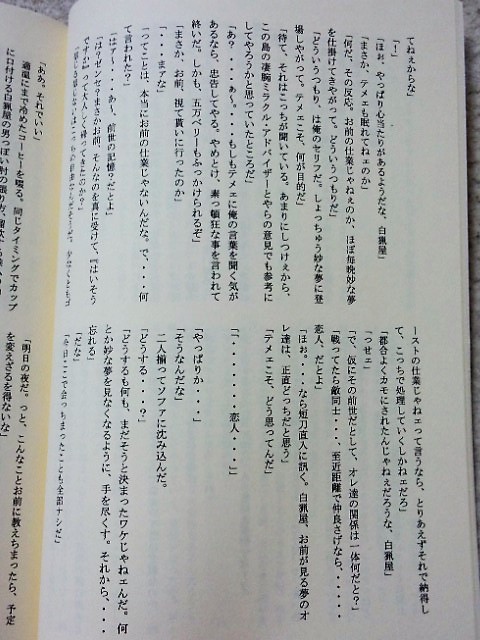 てねぇからな」
「！」
「ほぉ、やっぱり心当たりがあるようだな、白猟屋」
「まさか、テメェも眠れてねェのか」
「何だ、その反応。お前の仕業じゃねぇのか、ほぼ毎晩妙な夢
を仕掛けてきやがって。どういうつもりだ」
「どういうつもり、は俺のセリフだ。しょっちゅう妙な夢に登
場しやがって。テメェこそ、何が目的だ」
「待て、それはこっちが聞いている。あまりにしつけェから、
この島の凄腕ミラクル・アドバイザーとやらの意見でも参考に
してやろうかと思っていたところだ」
「あ？・・・ぁ〜、・・・もしもテメェに俺の言葉を聞く気が
あるなら、忠告してやる。やめとけ、素っ頓狂な事を言われて
終いだ。しかも、五万ベリーもふっかけられるぞ」
「まさか、お前、視て貰いに行ったのか」
「・・・まァな」
「ってことは、本当にお前の仕業じゃないんだな。で、・・・何
て言われた？」
「はァ、・・・あぁ、前世の記憶？だとよ」
「は？ゼンセ？まさかお前、そんなのを真に受けて、『はいそう
ーストの仕業じゃねェって言うなら、とりあえずそれで納得し
て、こっちで処理していくしかねェだろ」
「都合よくカモにされたんじゃねぇだろうな、白猟屋」
「っせェ」
「で、仮にその前世だとして、オレ達の関係は一体何だと？」
「戦ってたら敵同士・・・、至近距離で仲良さげなら、・・・・・
恋人、だとよ」
「ほぉ。・・・なら短刀直入に訊く。白猟屋、お前が見る夢のオ
レ達は、正直どっちだと思う」
「テメェこそ、どう思ってんだ」
「「・・・・・・・恋人・・・・」」
「やっぱりか・・・」
「そうなんだな」
二人揃ってソファに沈み込んだ。
「どうする・・・？」
「どうするも何も、まだそうと決まったワケじゃねェんだ。何
とか妙な夢を見なくなるように、手を尽くす。それから、・・・
忘れる」
「だな」
「今日ここで会っちまったことも全部ナシだ」
「ああ。それでいい」
適温にまで冷めたコーヒーを啜る。同じタイミングでカップ
に口付ける白猟屋の男っぽい肘の張り方
「明日の夜だ。っと、こんなことお前に教えちまったら、予定
を変えざるを得ないな」